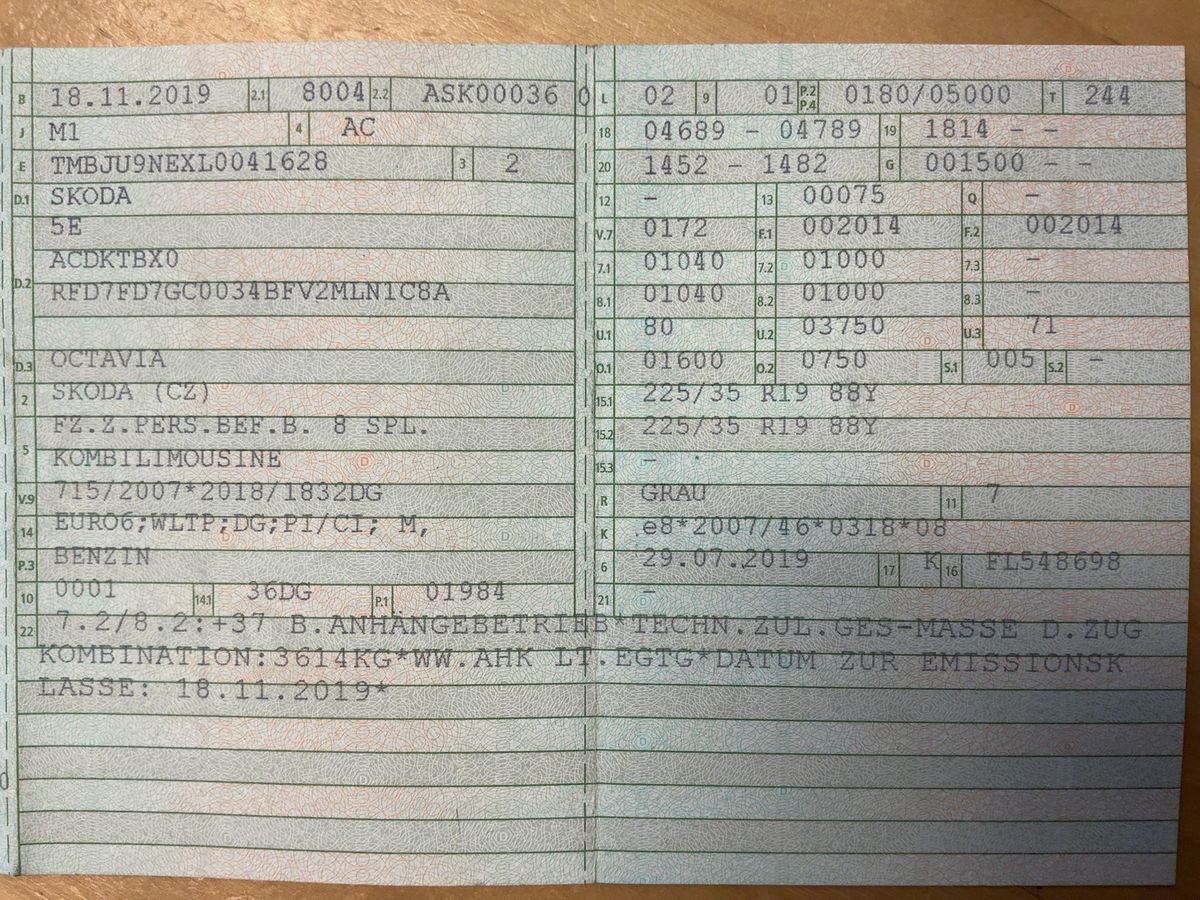 B 18.11.2019 2.1 8004 2.2 ASK00036 0
J M1 4 AC
E TMBJU9NEXL0041628 3 2
D.1 SKODA
5E
D.2 ACDKTBX0
RFD7FD7GC0034BFV2MLN1C8A
D.3 OCTAVIA
2 SKODA (CZ)
5 FZ.Z.PERS.BEF.B. 8 SPL.
KOMBILIMOUSINE
V.9 715/2007*2018/1832DG
14 EURO6;WLTP;DG;PI/CI; M,
P.3 BENZIN
10 0001 14.1 36DG P.1 01984
L 02 9 01 P.2 P.4 0180/05000 T 244
18 04689 - 04789 19 1814 - -
20 1452 - 1482 G 001500 - -
12 - 13 00075 Q -
V.7 0172 F.1 002014 F.2 002014
7.1 01040 7.2 01000 7.3 -
8.1 01040 8.2 01000 8.3 -
U.1 80 U.2 03750 U.3 71
O.1 01600 O.2 0750 S.1 005 S.2 -
15.1 225/35 R19 88Y
15.2 225/35 R19 88Y
15.3 -
R GRAU 11 7
K e8*2007/46*0318*08
6 29.07.2019 17 K 16 FL548698
21 -
22 7.2/8.2:+37 B.ANHÄNGEBETRIEB*TECHN.ZUL.GES-MASSE D.ZUG
KOMBINATION:3614KG*WW.AHK LT.EGTG*DATUM ZUR EMISSIONSK
LASSE: 18.11.2019*